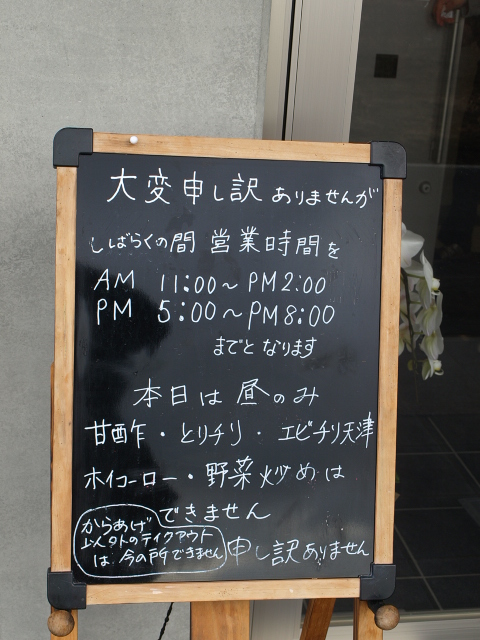 大変申し訳ありませんが
しばらくの間 営業時間を
AM 11:00～PM2:00
PM 5:00～PM8:00
までとなります
本日は昼のみ
甘酢・とりチリ・エビチリ天津
ホイコーロー・野菜炒めは
できません
からあげ
以外のテイクアウト
は、今の所できません
申し訳ありません